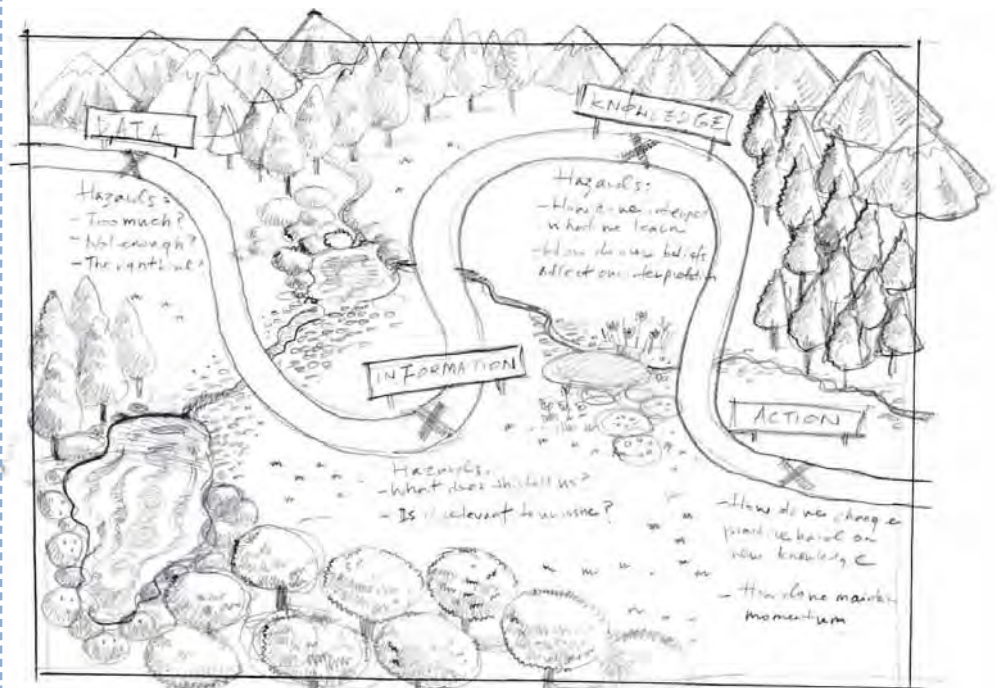 DATA
Hazards:
- Too much?
- Not enough?
- The right kind?
KNOWLEDGE
Hazards:
- How do we interpret
what we learn
- How do our beliefs
affect our interpretation
INFORMATION
Hazards:
- What does this tell us?
- Is it relevant to
ACTION
- How do we change
practice based on
new knowledge
- How do we maintain
momentum